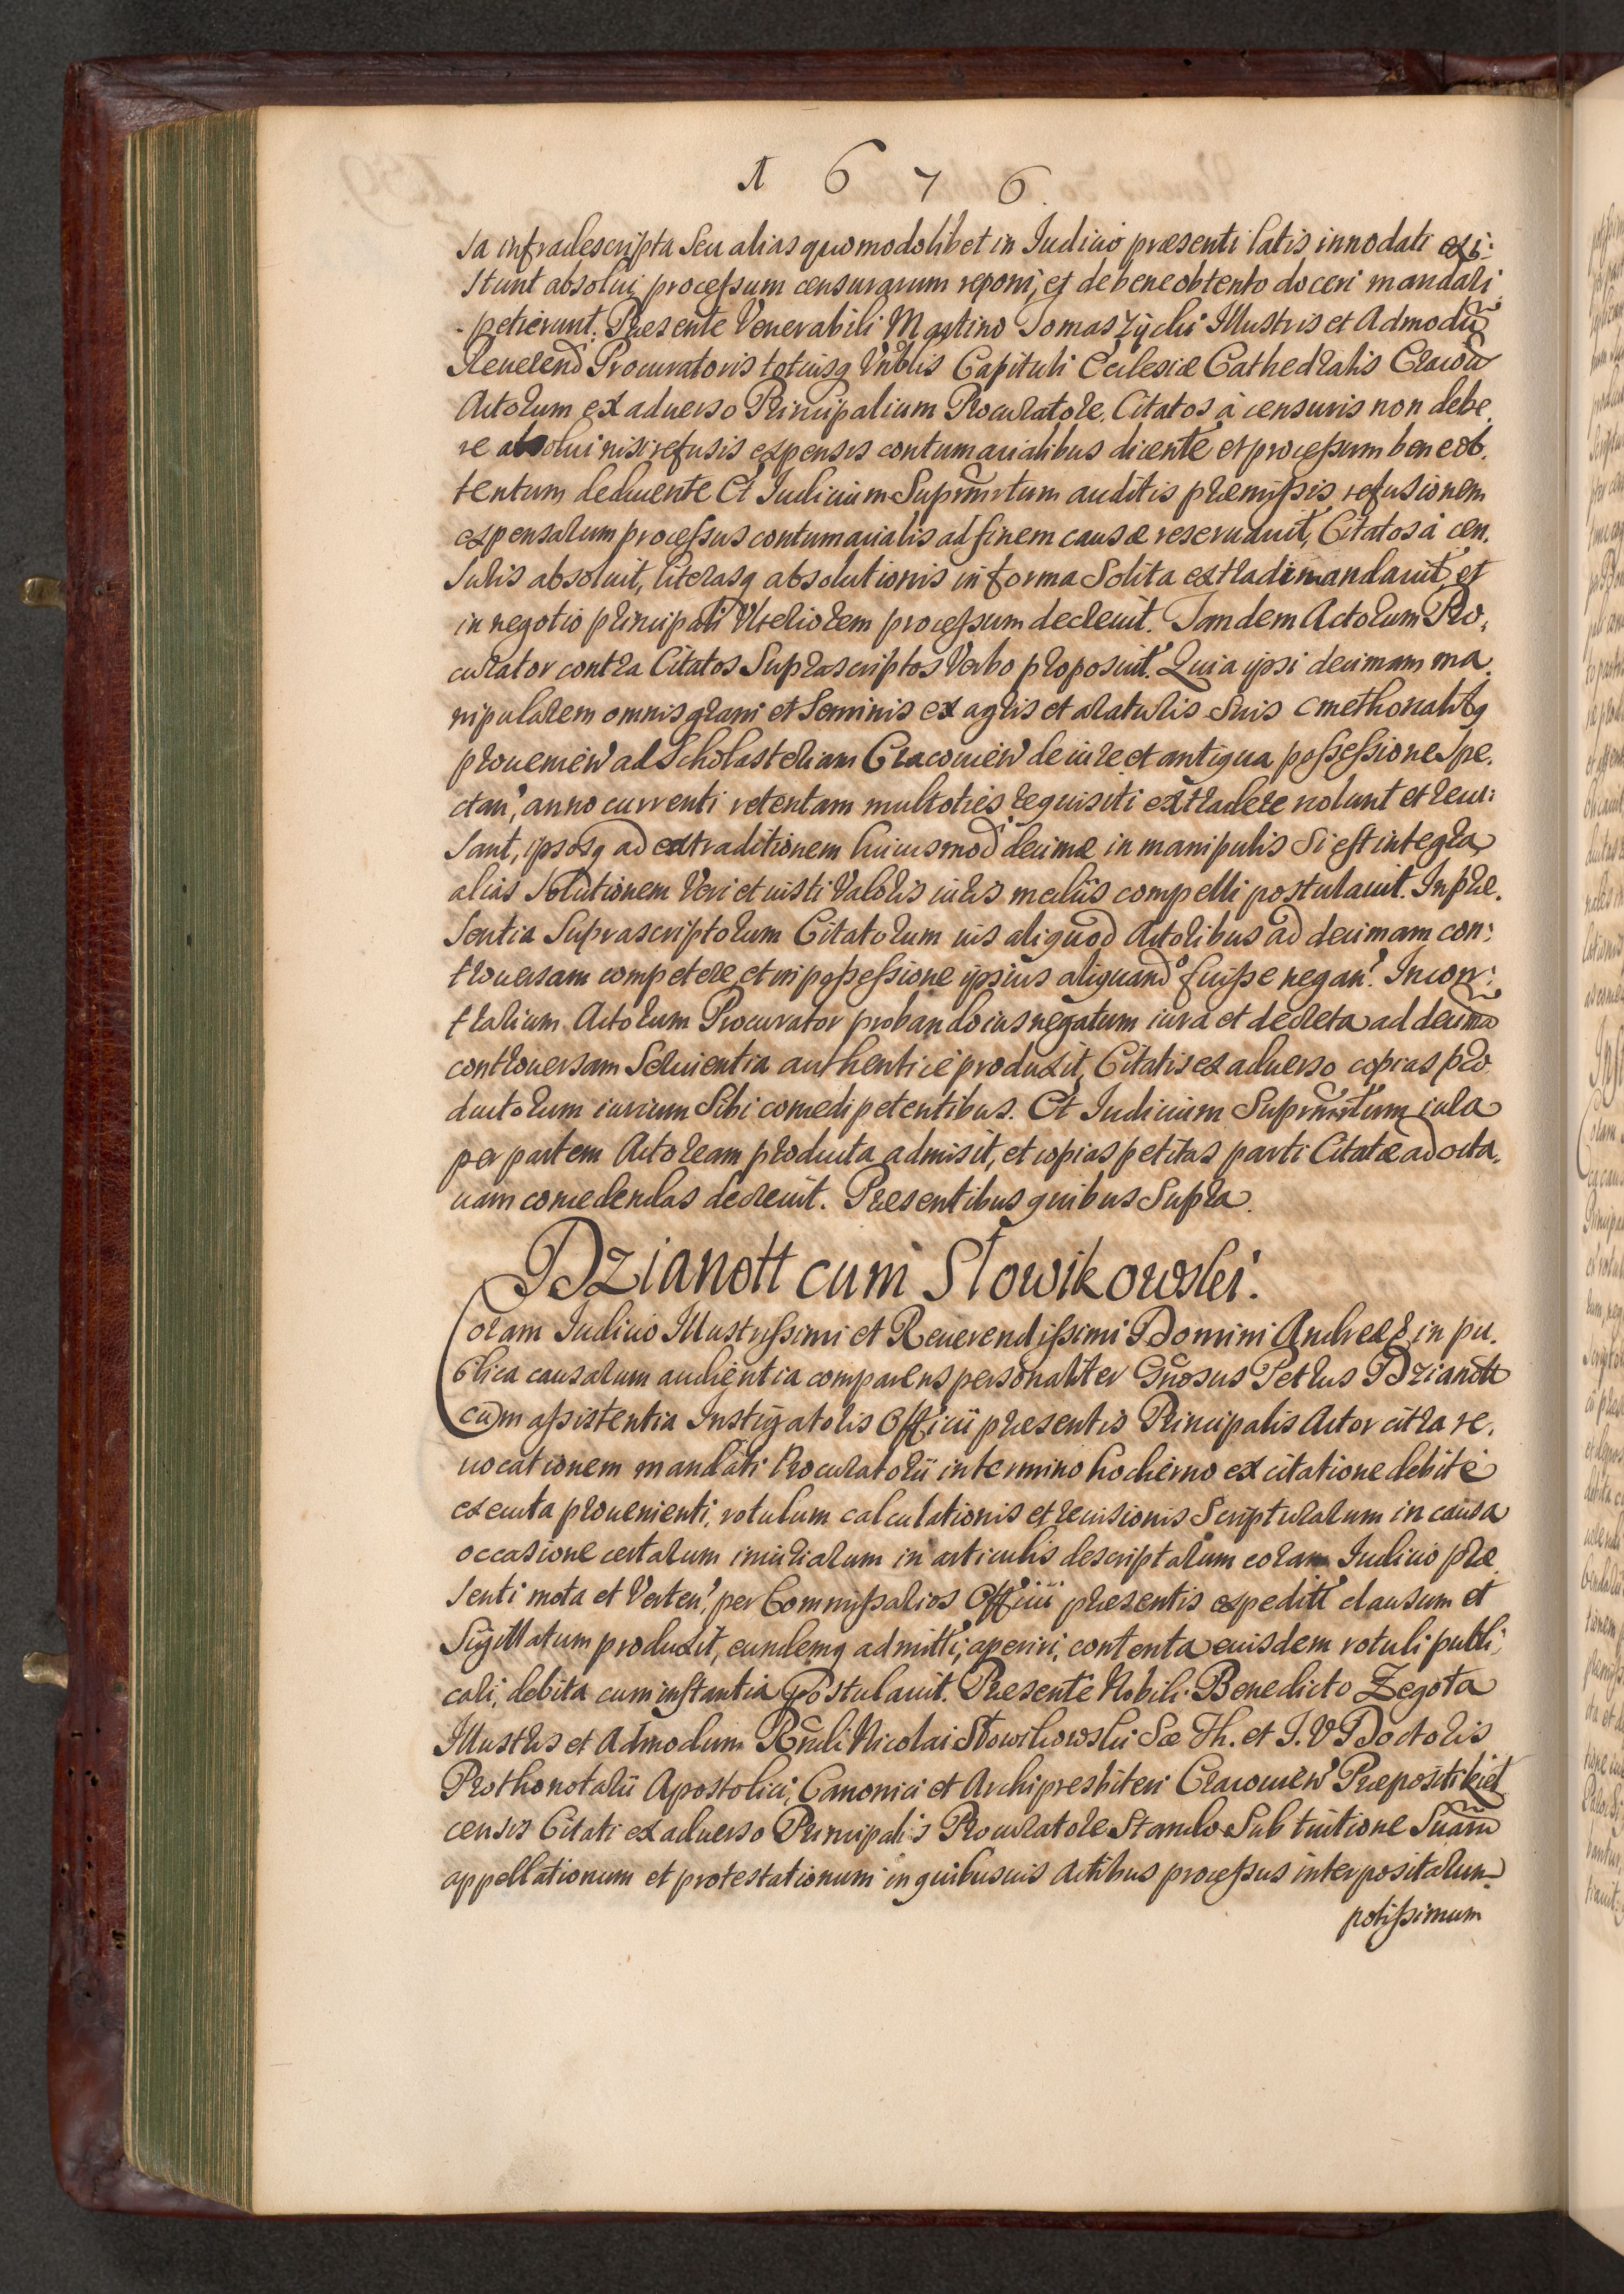 1 6 7 6.
sa infradescripta seu alias quomodolibet in Iudicio præsenti latis innodati exi:
stunt absolui, processum censurarum reponi, et de bene obtento doceri mandari
petierunt. Præsente Venerabili Martino Tomaszÿcki Illustris et Admodũ
Reuerend Procuratoris totiusq Vñblis Capituli Ecclesiæ Cathedralis Cracou
Actorum ex aduerso Principalium Procuratore, Citatos à censuris non debe,
re absolui nisi refusis expensis contumacialibus dicente et processum bene ob,
tentum deducente Et Iudicium Suprañnrtum auditis præmissis refusionem
expensarum processus contumacialis ad finem causæ reseruauit, Citatos à cen,
suris absoluit, literasq absolutionis in forma solita extradi mandauit, et
in negotio principali Vlteriorem processum decreuit. Tandem Actorum Pro,
curator contra Citatos Suprascriptos Verbo proposuit. Quia ipsi decimam ma,
nipularem omnis grani et Seminis ex agris et araturis Suis Cmethonalibq
prouenien ad Scholasteriam Cracouien de iure et antiqua possessione Spe,
ctan, anno currenti retentam multoties requisiti extradere nolunt et recu:
sant, ipsosq ad extraditionem huiusmod decimæ in manipulis si est integra,
alias solutionem Veri et iusti Valoris iuris medijs compelli postulauit. In præ,
sentia Suprascriptorum Citatorum ius aliquod Actoribus ad decimam con:
trouersam competere, et in possessione ipsius aliquando fuisse negan. In con:
trarium Actorum Procurator probando ius negatum iura et decreta ad decimã
controuersam Seruientia authenticè produxit, Citatis ex aduerso copias pro
ductorum iurium Sibi concedi petentibus. Et Iudicium Suprañnrtum iura
per partem Actoream producta admisit, et copias petitas parti Citatæ ad octa,
uam concedendas decreuit. Præsentibus quibus Supra.
Dzianott cum Słowikowski.
Coram Iudicio Illustrissimi et Reuerendissimi Domini Andreæ in pu,
blica causarum audientia comparens personaliter Gñosus Petrus Dzianott
cum assistentia Instigatoris Officii præsentis Principalis Actor citra re,
uocationem mandati Procuratorii in termino hodierno ex citatione debitè
executa prouenienti, rotulum calculationis et reuisionis Scripturarum in causa
occasione certarum iniuriarum in articulis descriptarum coram Iudicio præ
senti mota et Verten, per Commissarios Officii præsentis expedit clausum et
Sigillatum produxit, eundemq admitti, aperiri, contenta euisdem rotuli publi:
cari, debita cum instantia Postulauit. Præsente Nobili Benedicto Zegota
Illustris et Admodum Rñdi Nicolai Słowikowski Sæ Th. et I. V Doctoris
Prothonotarii Apostolici, Canonici et Archipresbiteri Cracouien Præpositi Kiel
censis Citati ex aduerso Principalis Procuratore Stando Sub tuitione Suarũ
appellationum et protestationum in quibusuis Actibus processus interpositarum
potissimum